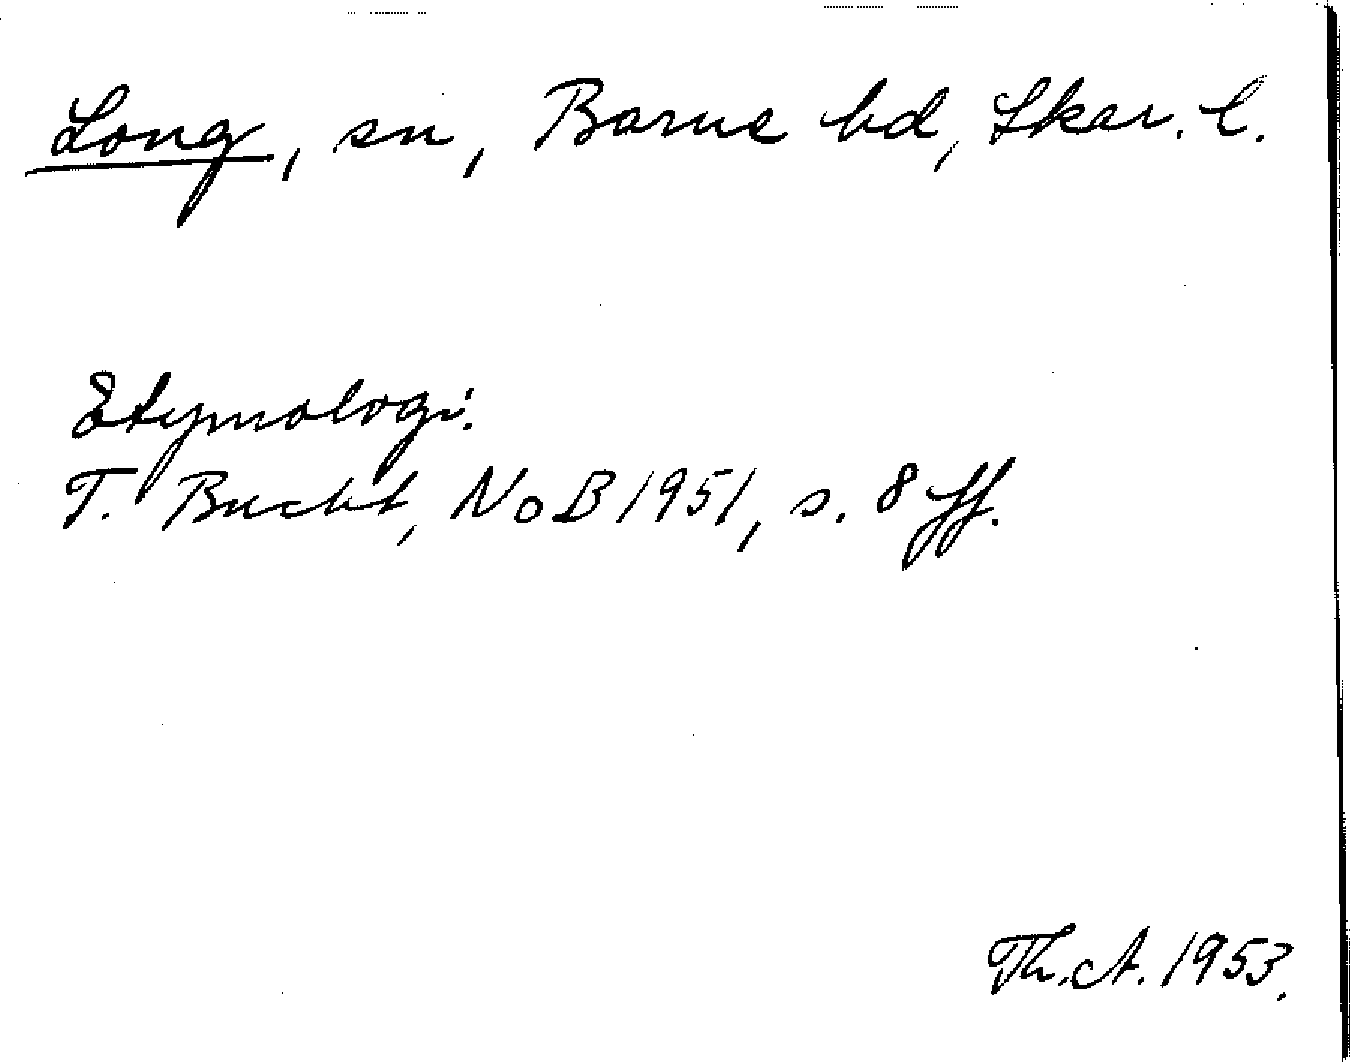 Long, sn, Barne hd, Skar. l.
Etymologi:
T. Bucht, NoB 1951, s. 8 ff.
Th. A. 1953.